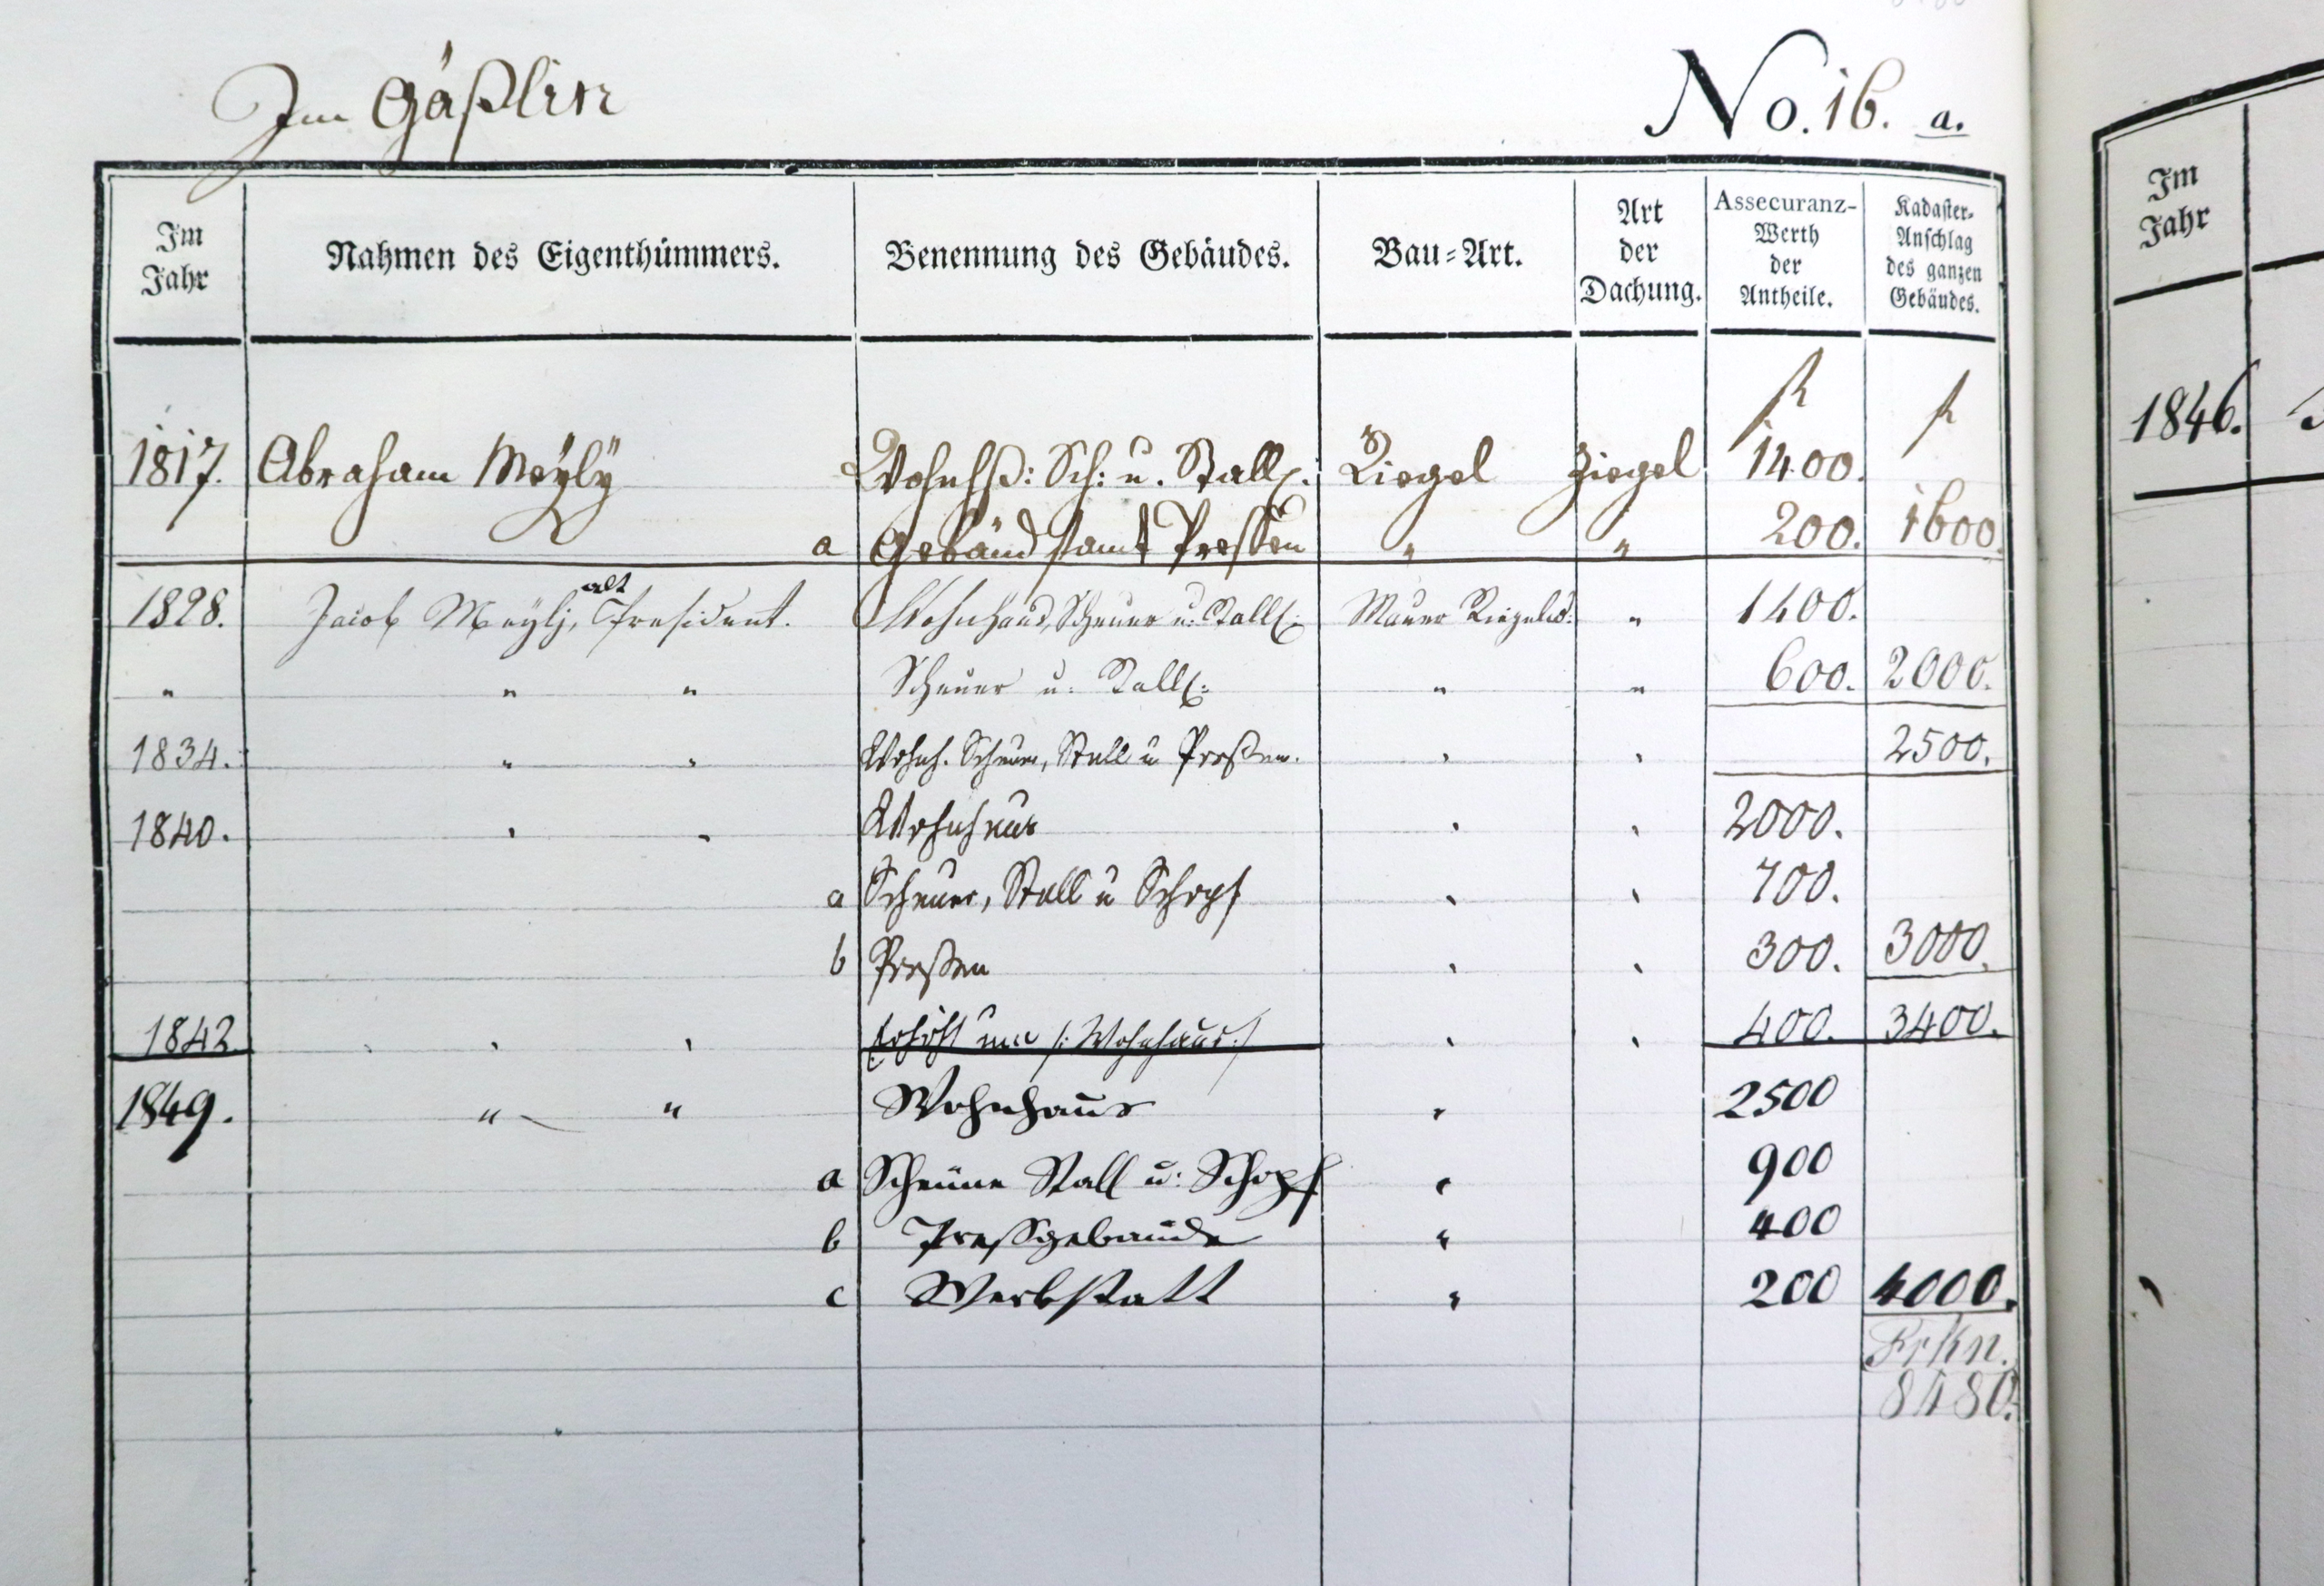 Im Gäßlin
No. 16. a.
Im Jahr
Nahmen des Eigenthümmers.
Benennung des Gebäudes.
Bau-Art.
Art der Dachung.
Assecuranz-Werth der Antheile.
Kadaster-Anschlag des ganzen Gebäudes.
Im Jahr
f f
1817. Abraham Meÿlÿ Wohnhß: Sch: u. Stallg. Riegel Ziegel 1400.
a Gebäud samt Pressen " " 200. 1600.
1828. Jacob Meÿlj, alt President. Wohnhaus, Scheuer u. Stallg: Mauer Riegelw: " 1400.
" " " Scheuer u. Stallg: " " 600. 2000.
1834. " " Wohnh. Scheuer, Stall u Preßen. " " 2500.
1840. " " Wohnhaus " " 2000.
a Scheuer, Stall u Schopf " " 700.
b Preßen " " 300. 3000.
1842. " " Erhöht um /: Wohnhaus :/ " " 400. 3400.
1849. " " Wohnhaus " 2500
a Scheüne Stall u: Schopf " 900
b Preßgebäude " 400
c Werkstatt " 200 4000.
Frkn.
8480.
1846.